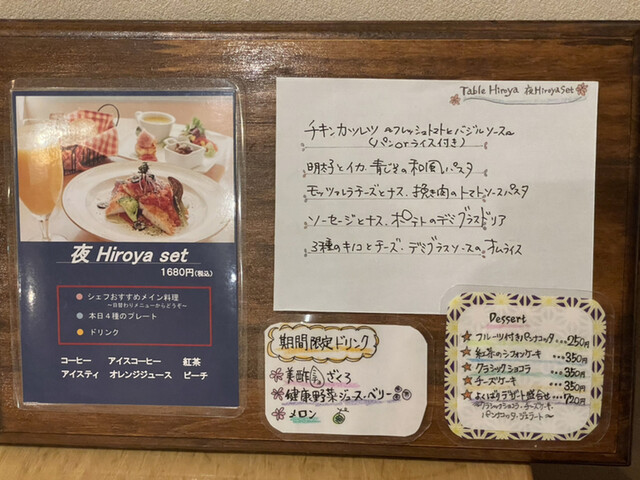 夜 Hiroya set
1680円(税込)
シェフおすすめメイン料理
～日替わりメニューからどうぞ～
本日4種のプレート
ドリンク
コーヒー アイスコーヒー 紅茶
アイスティ オレンジジュース ピーチ
Table Hiroya 夜HiroyaSet
チキンカツレツ ～フレッシュトマトとバジルソース～
(パンorライス付き)
明太子とイカ、青じその和風パスタ
モッツァレラチーズとナス、挽き肉のトマトソースパスタ
ソーセージとナス、ポテトのデミグラスドリア
3種のキノコとチーズ、デミグラスソースのオムライス
期間限定ドリンク
美酢 ざくろ
健康野菜ジュース・ベリー
メロン
Dessert
フルーツ付きパンナコッタ…250円
紅茶のシフォンケーキ…350円
クラシックショコラ…350円
チーズケーキ…350円
よくばりデザート盛合せ…720円
クラシックショコラ・チーズケーキ・
パンナコッタ・ジェラート～